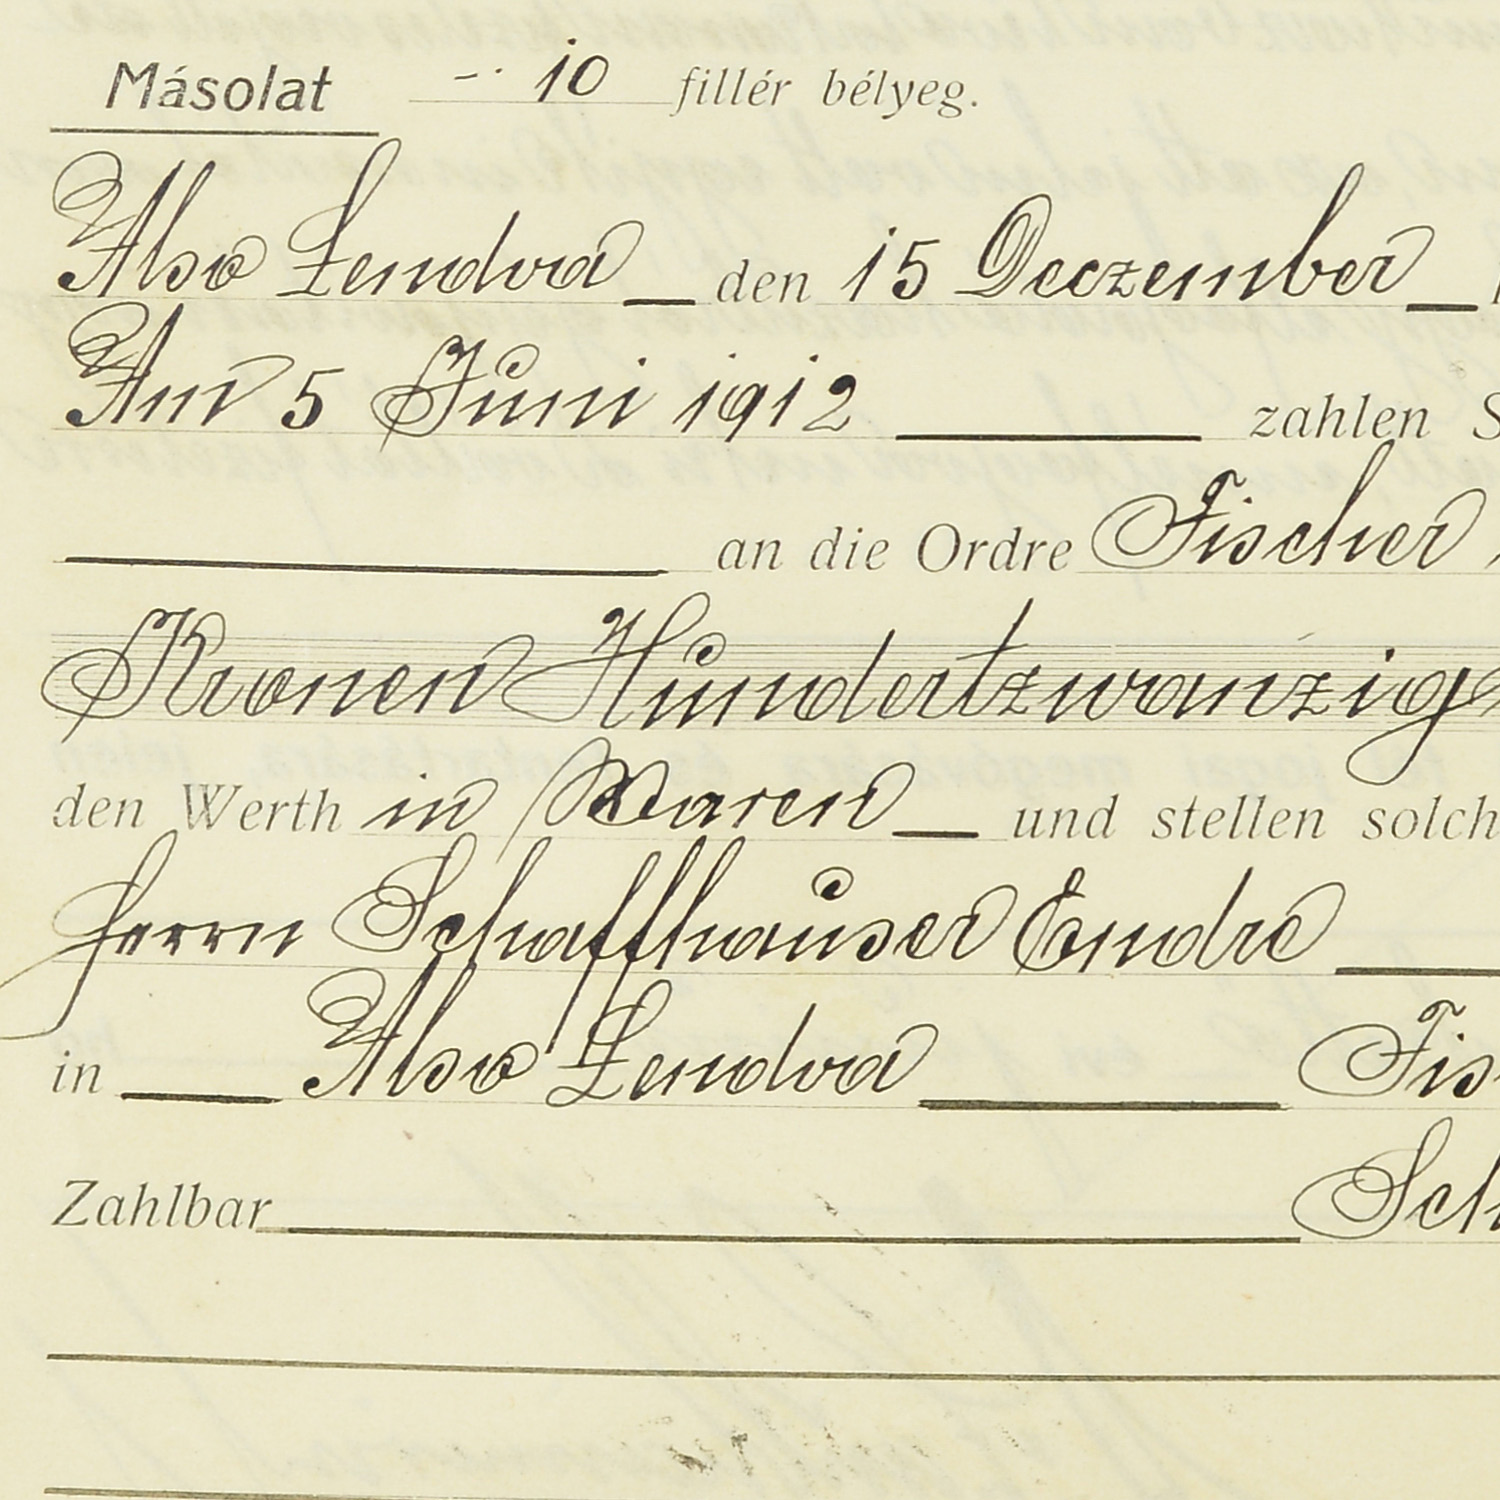 Másolat -· 10 fillér bélyeg.
Also Lendva den 15 Deczember
Am 5 Juni 1912 zahlen S
an die Ordre Fischer
Kronen Hundertzwanzig
den Werth in Waren und stellen solch
Herrn Schaffhauser Endre
in Also Lendva Fis
Zahlbar Sch